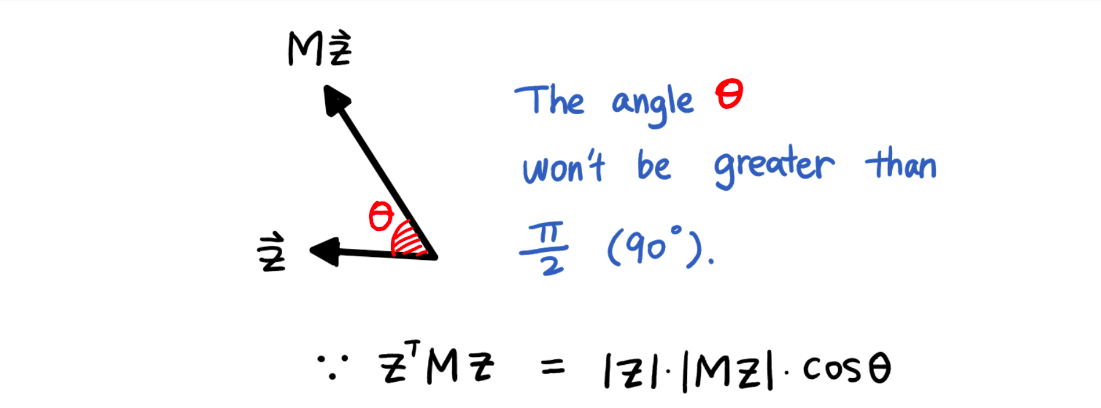 Mz⃗
The angle θ
won't be greater than
θ
z⃗
π/2 (90°).
∵ zᵀMz = |z|·|Mz|·cosθ